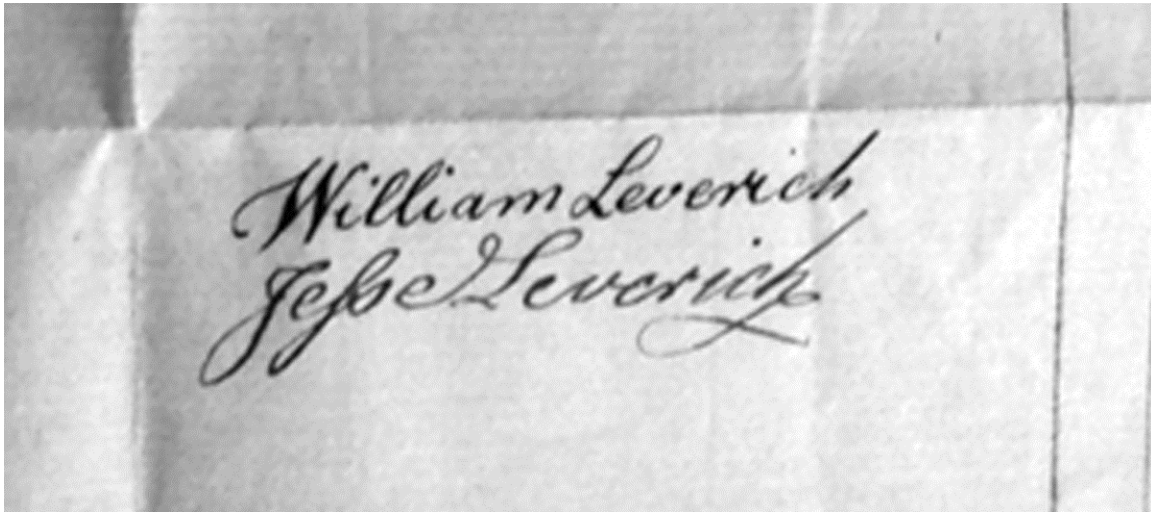 William Leverich
Jeſse Leverich